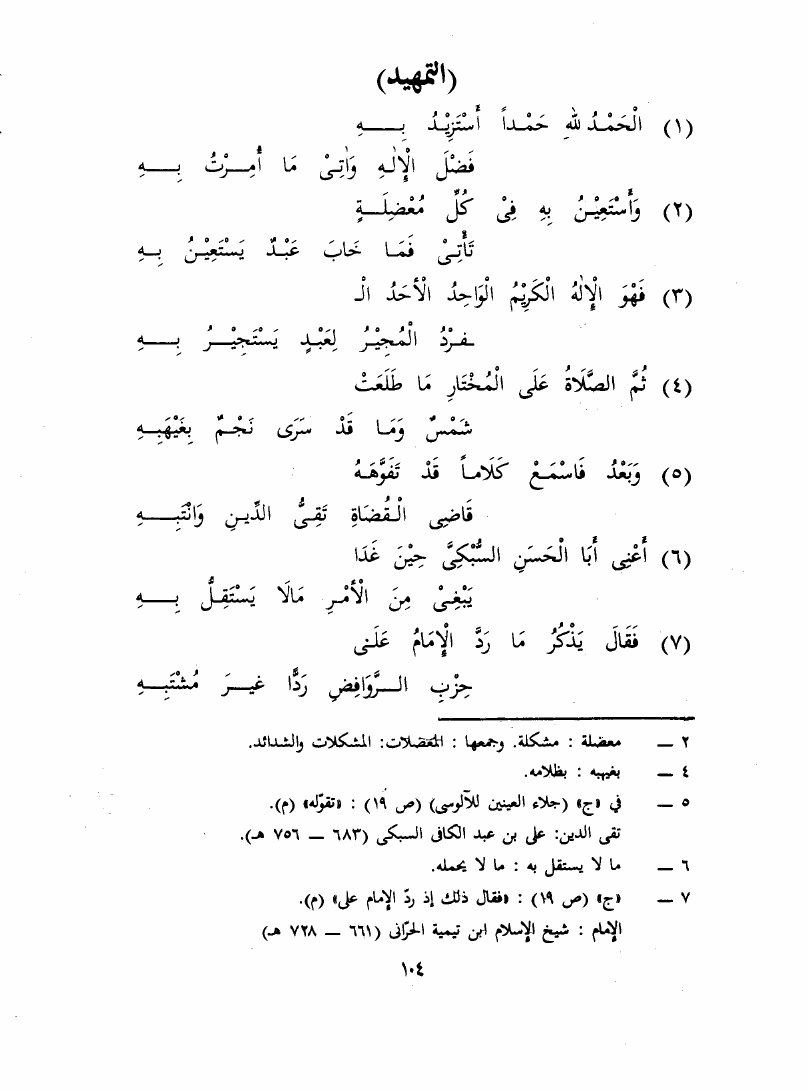 (التمهيد)
(١) الْحَمْدُ للهِ حَمْداً أَسْتَزِيْدُ بِـــهِ
فَضْلَ الْإِلٰهِ وَآتِىْ مَا أُمِرْتُ بِـــهِ
(٢) وَأَسْتَعِيْنُ بِهِ فِىْ كُلِّ مُعْضِلَـةٍ
تَأْتِىْ فَمَا خَابَ عَبْدٌ يَسْتَعِيْنُ بِـهِ
(٣) فَهْوَ الْإِلٰهُ الْكَرِيْمُ الْوَاحِدُ الْأَحَدُ الْـ
ـفردُ الْمُجِيْرُ لِعَبْدٍ يَسْتَجِيْـرُ بِـــهِ
(٤) ثُمَّ الصَّلَاةُ عَلَى الْمُخْتَارِ مَا طَلَعَتْ
شَمْسٌ وَمَا قَدْ سَرَى نَجْمٌ بِغَيْهَبِـهِ
(٥) وَبَعْدُ فَاسْمَـعْ كَلَامـاً قَدْ تَفَوَّهَـهُ
قَاضِي الْقُضَاةِ تَقِىُّ الدِّيـنِ وَانْتَبِـــهِ
(٦) أَعْنِى أَبَا الْحَسَنِ السُّبْكِىَّ حِيْنَ غَدَا
يَبْغِىْ مِنَ الْأَمْـرِ مَالَا يَسْتَقِـلُّ بِـــهِ
(٧) فَقَالَ يَذْكُرُ مَا رَدَّ الْإِمَامُ عَلَـى
حِزْبِ الـرَّوَافِضِ رَدًّا غَيـرَ مُشْتَبِـهِ
٢ — معضلة : مشكلة. وجمعها : المعضلات: المشكلات والشدائد.
٤ — بغيهبه : بظلامه.
٥ — في «ج» (جلاء العينين للآلوسى) (ص ١٩) : «تقوّله» (م).
تقى الدين: على بن عبد الكافى السبكى (٦٨٣ — ٧٥٦ هـ).
٦ — ما لا يستقل به : ما لا يحمله.
٧ — «ج» (ص ١٩) : «فقال ذلك إذ ردّ الإمام على» (م).
الإمام : شيخ الإسلام ابن تيمية الحرّانى (٦٦١ — ٧٢٨ هـ)
١٠٤